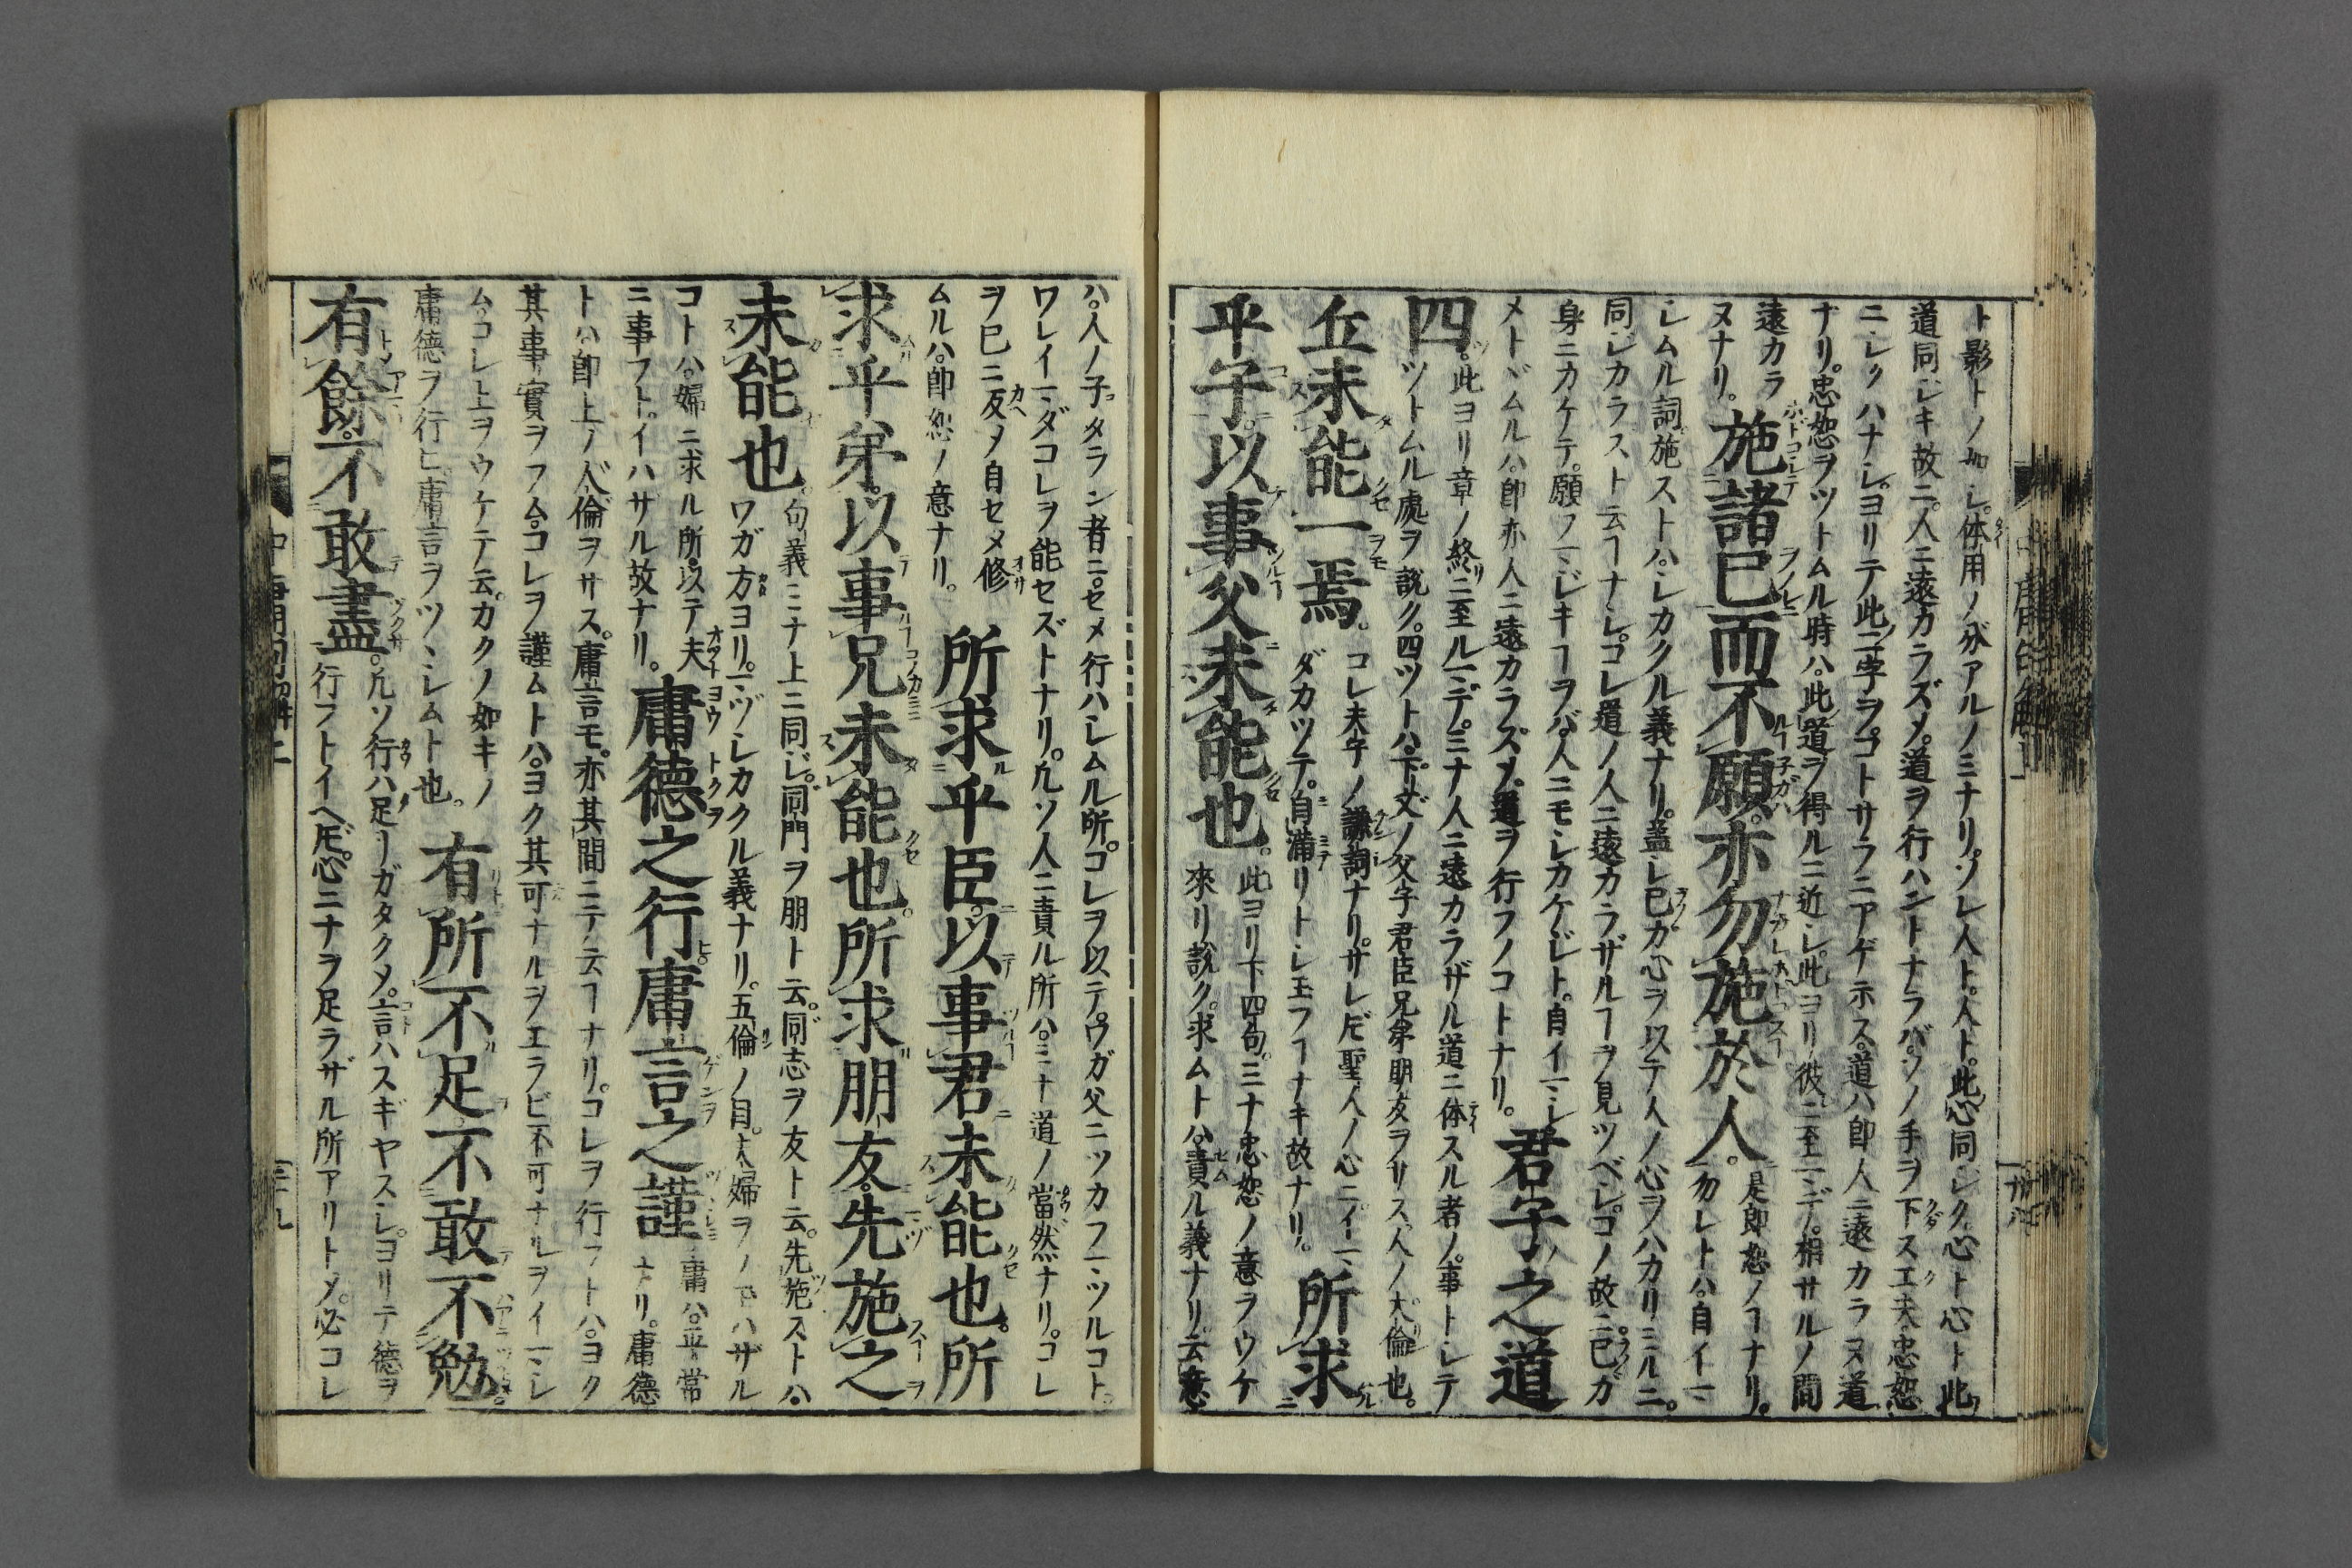 ト影トノ如シ。体用ノ分アルノミナリ。ソレ人ト。人ト。此心同シク。心ト心ト此
道同ジキ故ニ。人ニ遠カラズメ。道ヲ行ハントナラバ。ソノ手ヲ下スエ夫忠恕
ニシクハナシ。ヨリテ此二字ヲ。コトサラニアゲ示ス。道ハ即人ニ遠カラヌ道
ナリ。忠恕ヲツトムル時ハ。此道ヲ得ルニ近シ。此ヨリ彼ニ至マデノ。相サルノ間
遠カラ
ヌナリ。
施諸己而不願。亦勿施於人。
是即恕ノヿナリ。
勿レトハ。自イマ
シムル詞。施ストハ。シカクル義ナリ。蓋シ己カ心ヲ以テ人ノ心ヲハカリミルニ。
同シカラスト云ヿナシ。コレ道ノ人ニ遠カラザルヿヲ見ツベシ。コノ故ニ己カ
身ニカケテ。願フマジキヿヲバ。人ニモシカケジト。自イマシ
メトヾムルハ。即亦人ニ遠カラズメ。道ヲ行フノコトナリ。
君子之道
四。
此ヨリ章ノ終ニ至ルマデ。ミナ人ニ遠カラザル道ニ体スル者ノ。事トシテ
ツトムル處ヲ説ク。四ツトハ。下文ノ父子君臣兄弟朋友ヲサス。人ノ大倫也。
丘未能一焉。
コレ夫子ノ謙詞ナリ。サレ𪜈聖人ノ心ニ。イマ
ダカツテ。自満リトシ玉フヿナキ故ナリ。
所求
乎子。以事父未能也。
此ヨリ下四句。ミナ忠恕ノ意ヲウケ
來リ説ク。求ムトハ。責ル義ナリ。云意
ハ。人ノ子タラン者ニ。セメ行ハシムル所。コレヲ以テ。ワガ父ニツカフマツルコト。
ワレイマダコレヲ能セズトナリ。凡ソ人ニ責ル所ハ。ミナ道ノ當然ナリ。コレ
ヲ己ニ反メ自セメ修
ムルハ。即恕ノ意ナリ。
所求乎臣。以事君未能也。所
求乎弟。以事兄未能也。所求朋友。先施之
未能也。
句義ミナ上ニ同ジ。同門ヲ朋ト云。同志ヲ友ト云。先施ストハ。
ワガ方ヨリ。マヅシカクル義ナリ。五倫ノ目。夫婦ヲノベハザル
コトハ。婦ニ求ル所。以テ夫
ニ事フト。イハサル故ナリ。
庸徳之行。庸言之謹
庸ハ。平常
ナリ。庸徳
トハ。即上ノ人倫ヲサス。庸言モ。亦其間ニテノ云ヿナリ。コレヲ行フトハ。ヨク
其事實ヲフム。コレヲ謹ムトハ。ヨク其可ナルヲエラビ。不可ナルヲイマシ
ム。コレ上ヲウケテ云。カクノ如キノ
庸徳ヲ行ヒ。庸言ヲツヽシムト也。
有所不足。不敢不勉。
有餘。不敢盡。
凡ソ行ハ足リガタクメ。言ハスギヤスシ。ヨリテ徳ヲ
行フトイヘ𪜈。心ニナヲ足ラザル所アリトメ。必コレ